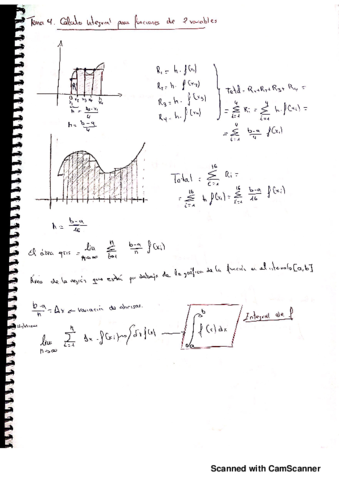 Tema 4. Cálculo integral para funciones de 2 variables
R₁ = h · f(x₁)
R₂ = h · f(x₂)
R₃ = h · f(x₃)
R₄ = h · f(x₄)
Total = R₁+R₂+R₃+R₄ =
= Σ Ri = Σ h f(xi) =
= Σ b-a/4 f(xi)
h = b-a/4
Total = Σ Ri =
= Σ h f(xi) = Σ b-a/16 f(xi)
h = b-a/16
El área gris = lim n→∞ Σ b-a/n f(xi)
Área de la región que está por debajo de la gráfica de la función en el intervalo [a,b]
b-a/n = Δx = variación de abscisas.
lim n→∞ Σ Δx · f(xi) ∫ f(x) dx
Integral de f
Scanned with CamScanner